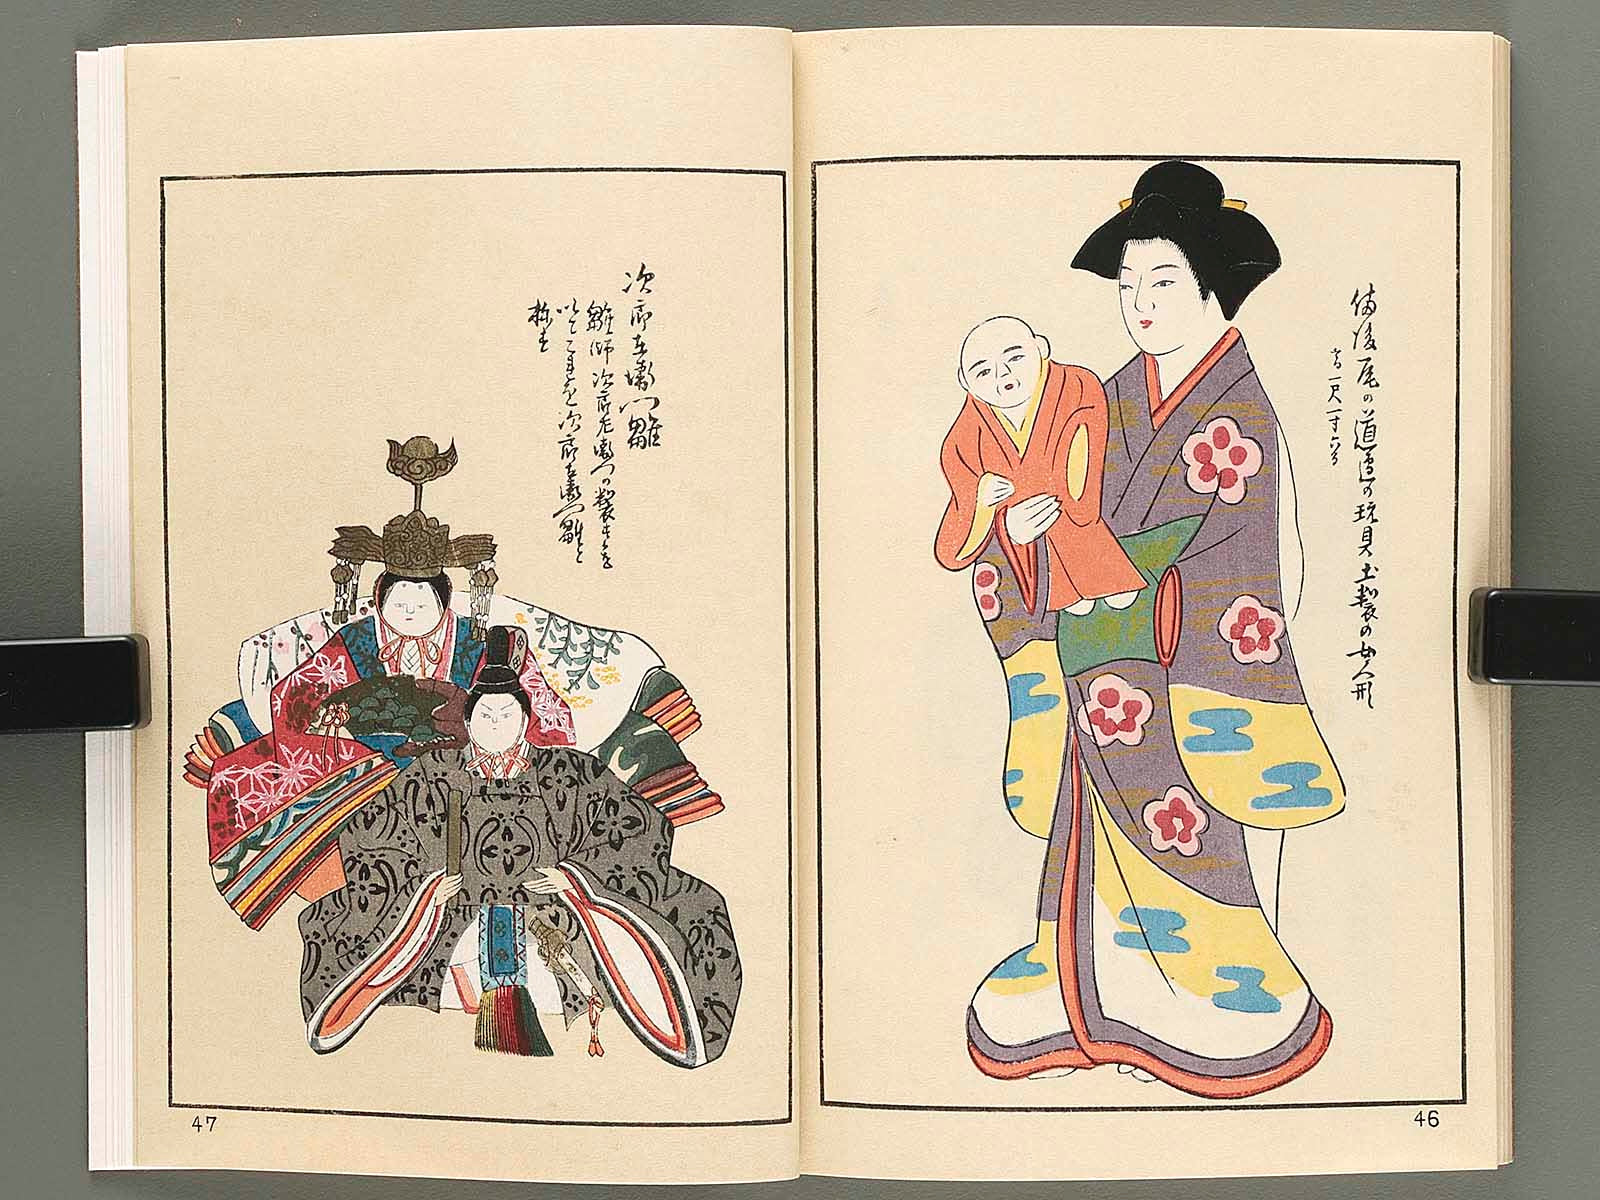 備後尾の道邊の玩具土製の女人形
高一尺一寸六分
46
次郎左衛門雛
雛師次郎左衛門の製するを
以てこれを次郎左衛門雛と
称す
47